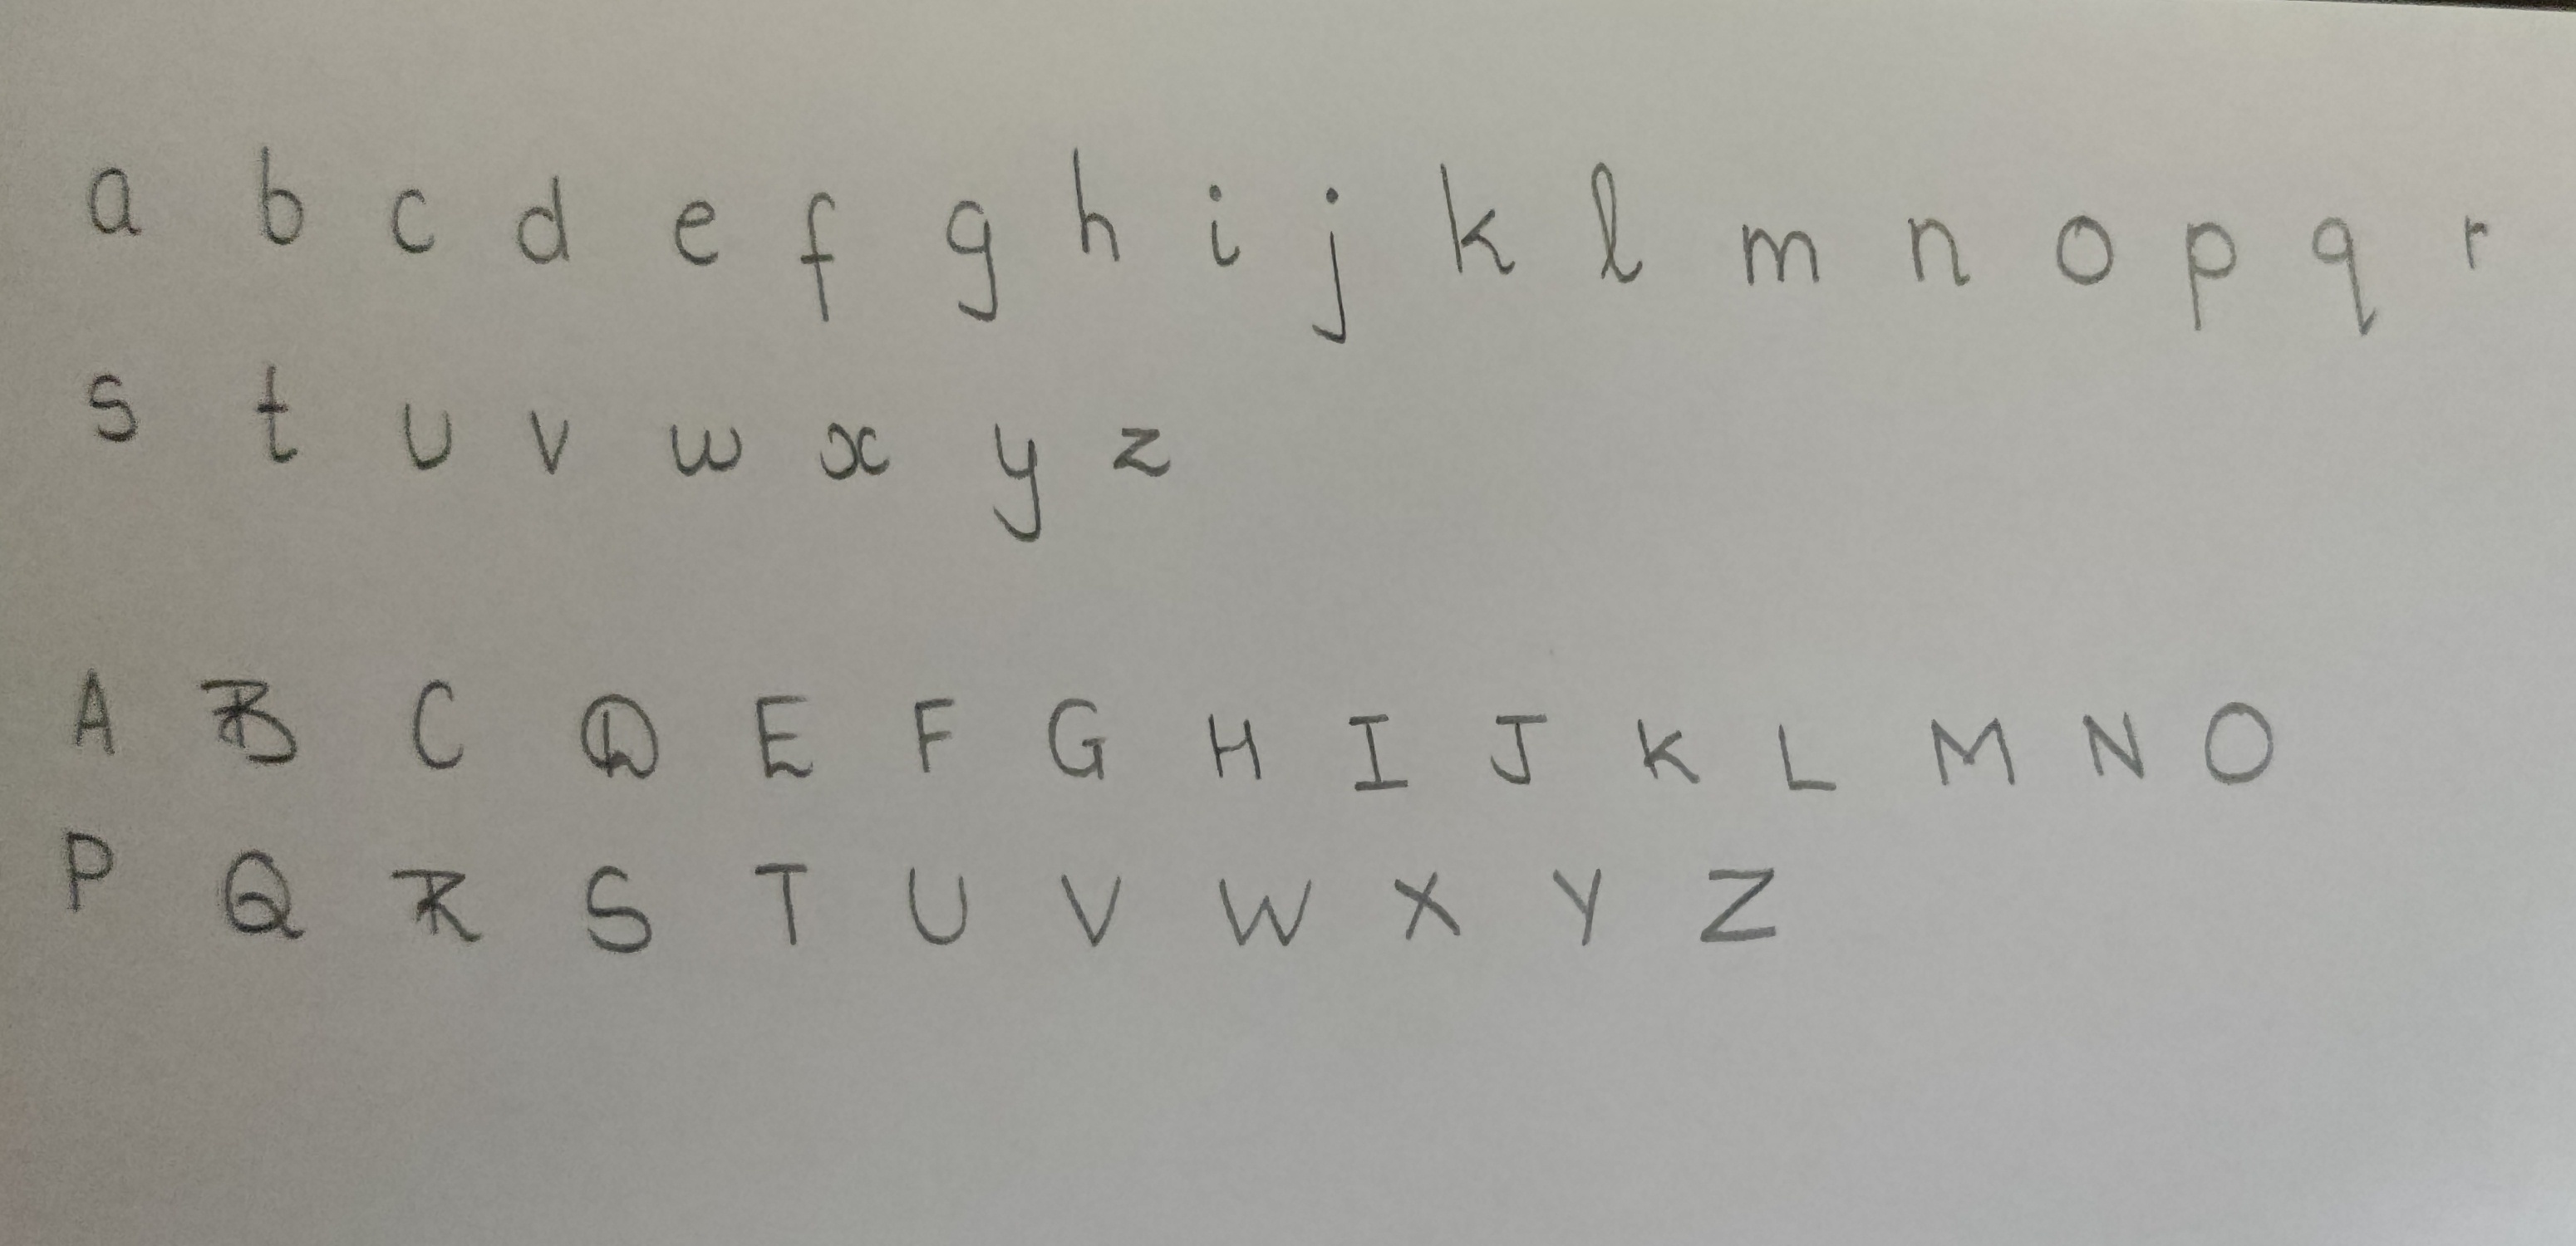 a b c d e f g h i j k l m n o p q r
s t u v w x y z
A B C D E F G H I J K L M N O
P Q R S T U V W X Y Z